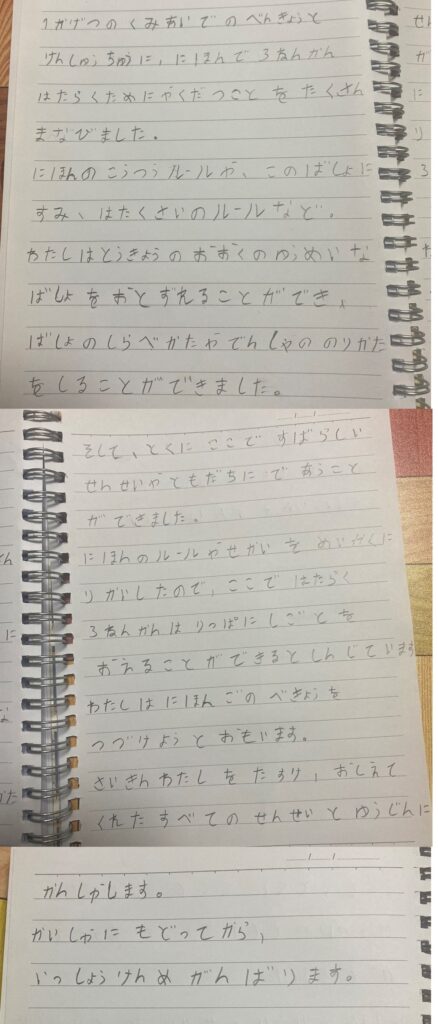 1かげつの くみあいでの べんきょうと
けんしゅうちゅうに, にほんで 3ねんかん
はたらくために やくだつこと を たくさん
まなびました。
にほんの こうつうルールや、この ばしょに
すみ、はたくさいのルール など。
わたしは とうきょうの おおくの ゆうめいな
ばしょ を おとずれる ことが でき、
ばしょの しらべかたや でんしゃの のりかた
を しる ことが できました。
そして、とくに ここで すばらしい
せんせいや ともだちに で あうこと
が できました。
にほんのルールや せかい を めいかくに
りかいしたので, ここで はたらく
3ねんかんは りっぱに しごと を
おえる ことが できると しんじています
わたしは にほんごの べきょうを
つづけようと おもいます。
さいきん わたしを たすけ, おしえて
くれた すべての せんせいと ゆうじんに
かんしゃします。
かいしゃに もどってから,
いっしょうけんめ がんばります。